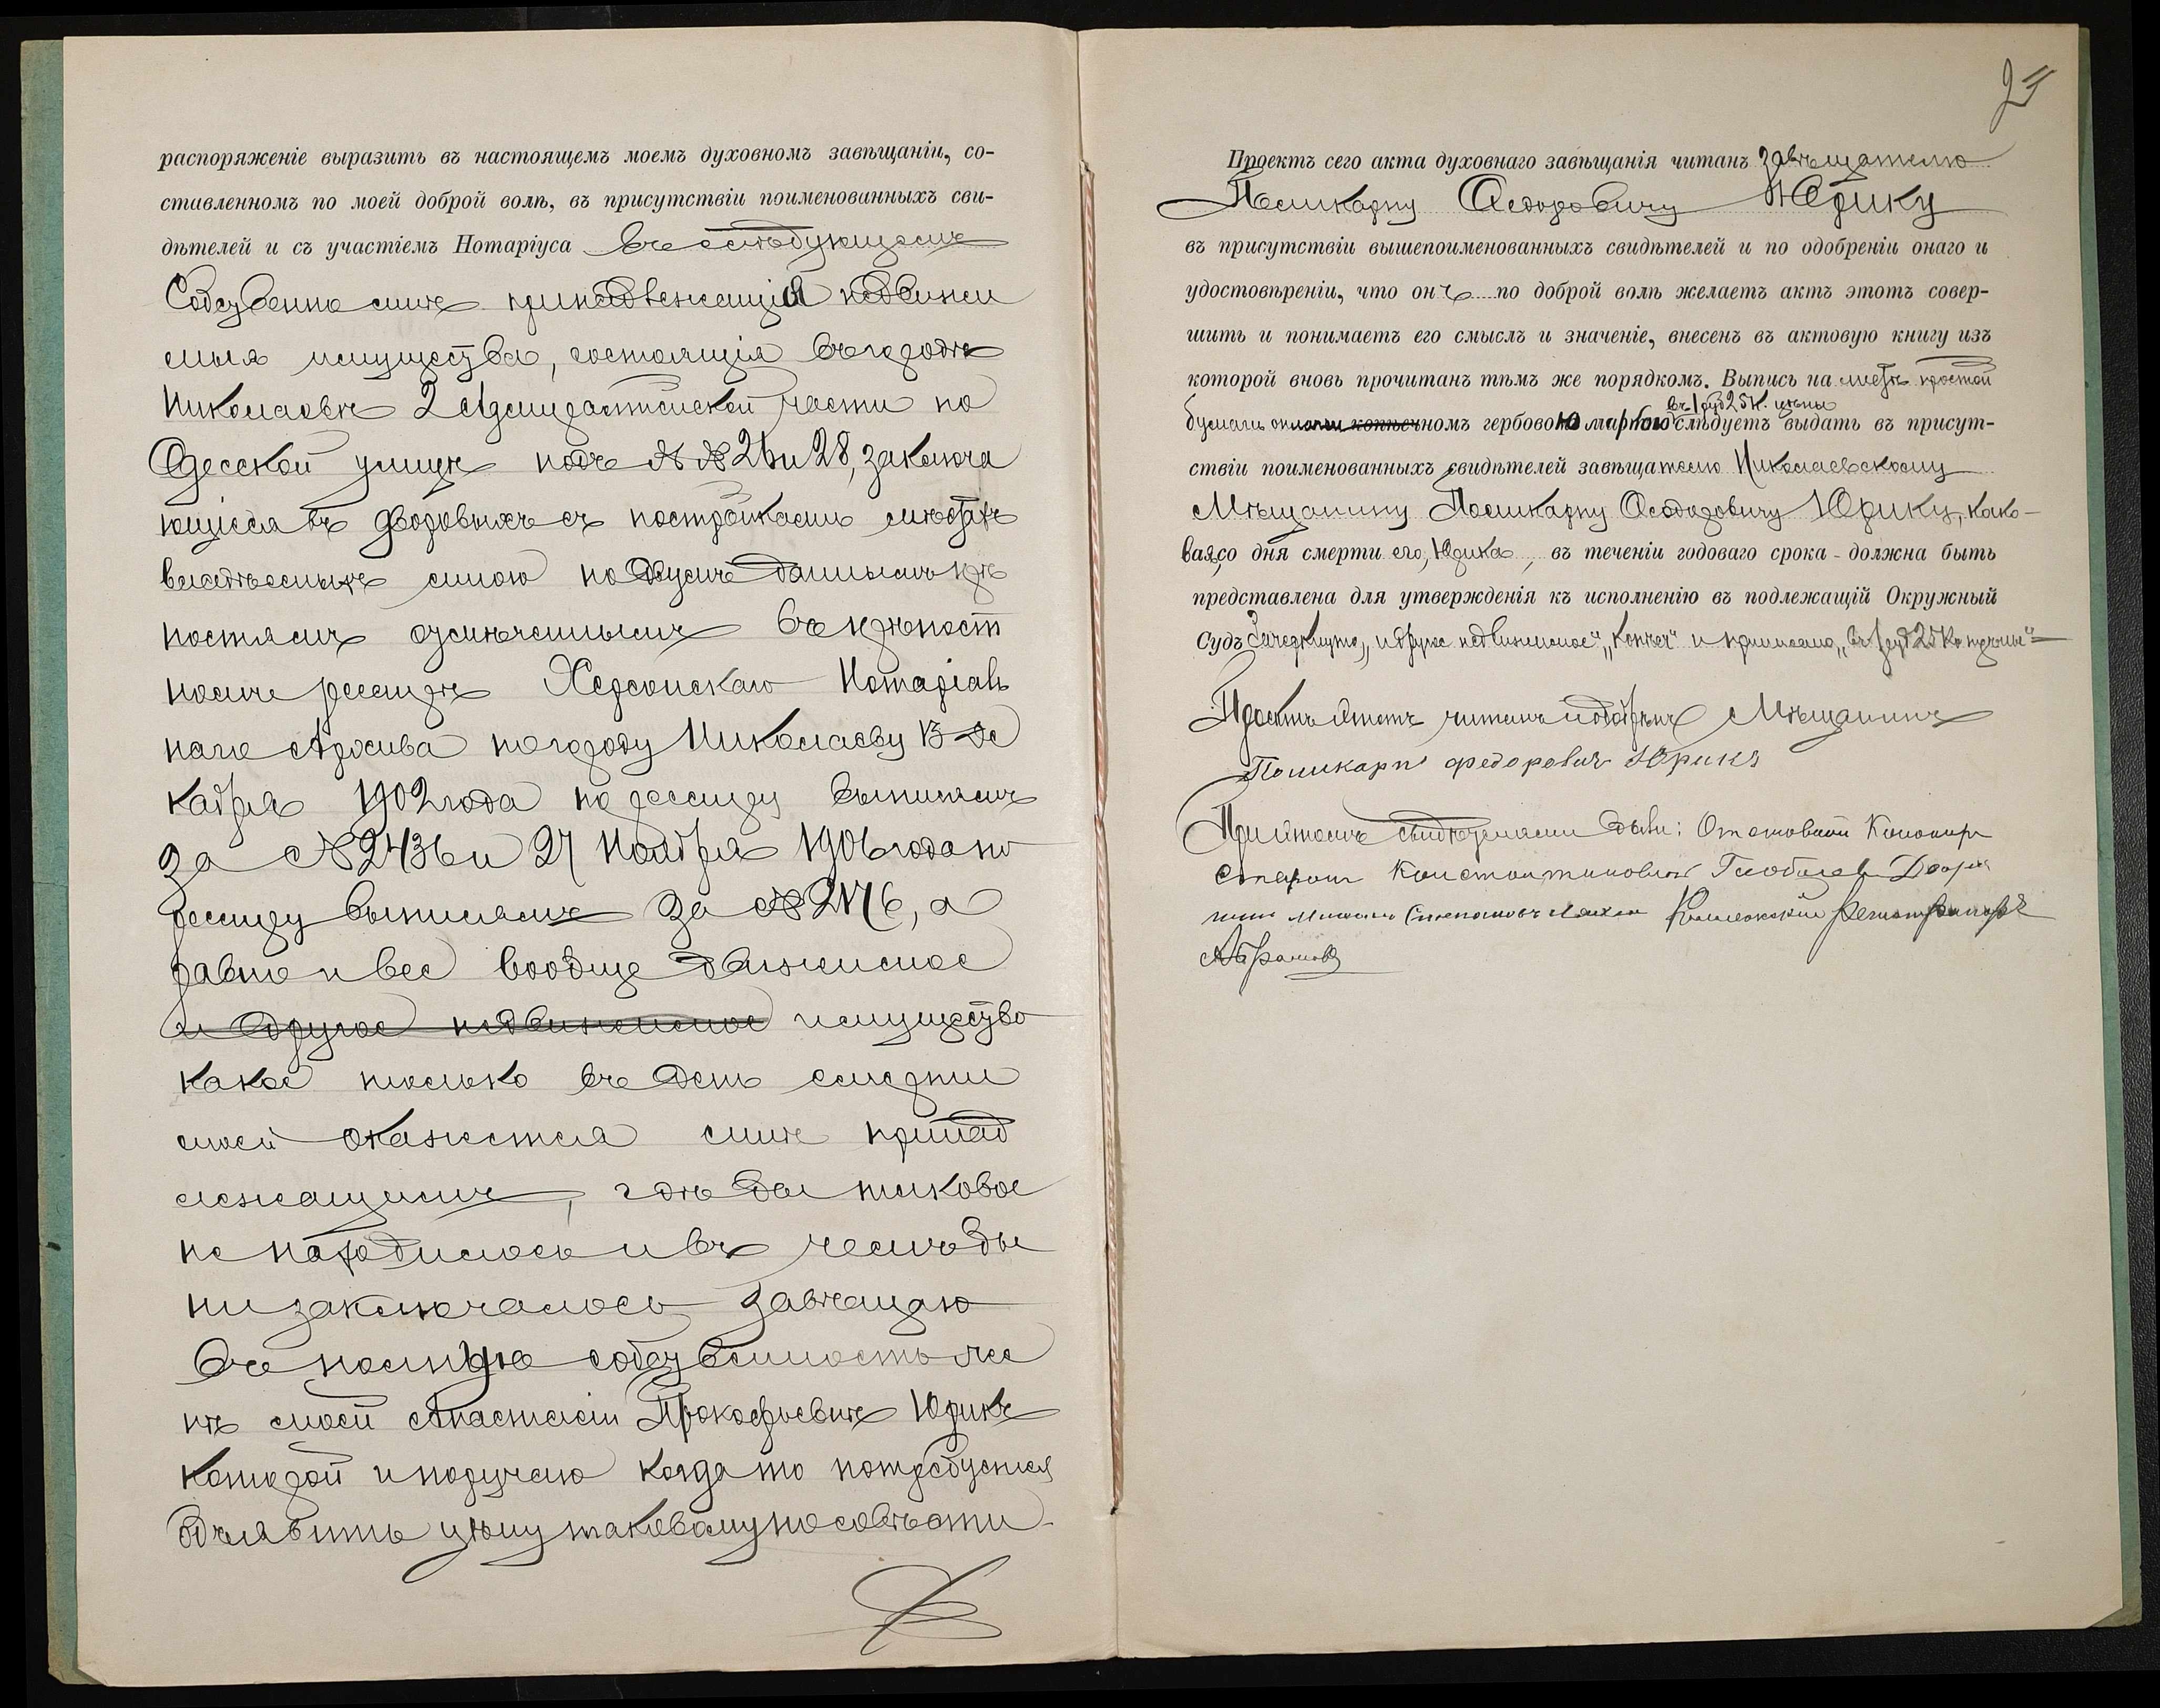 распоряженіе выразить въ настоящемъ моемъ духовномъ завѣщаніи, со-
ставленномъ по моей доброй волѣ, въ присутствіи поименованныхъ сви-
дѣтелей и съ участіемъ Нотаріуса въ слѣдующемъ
Собственно мнѣ принадлежащія недвижи
мыя имущества, состоящія въ городѣ
Николаевѣ 2 Адмиралтейской части по
Одесской улицѣ подъ №№ 26 и 28, заключа
ющіеся въ дворовыхъ съ постройками мѣстахъ
владѣемыхъ мною по двумъ даннымъ крѣ
постямъ отмѣченнымъ въ крѣпост
номъ реестрѣ Херсонскаго Нотаріаль
наго Архива по городу Николаеву 13 Де
кабря 1902 года по реестру выписямъ
за № 2436 и 27 Ноября 1906 года по
реестру выписямъ за № 2176, а
равно и все вообще движимое
и другое недвижимое имущество
какое только въ день смерти
моей окажется мнѣ принад
лежащимъ, гдѣ бы таковое
не находилось и въ чемъ бы
ни заключалось завѣщаю
въ полную собственность же
нѣ моей Анастасіи Прокофьевнѣ Юрикъ
которой и поручаю когда то потребуется
объявить цѣну таковому по совѣсти.
2
Проектъ сего акта духовнаго завѣщанія читанъ завѣщателю
Поликарпу Ѳеодоровичу Юрику
въ присутствіи вышепоименованныхъ свидѣтелей и по одобреніи онаго и
удостовѣреніи, что онъ по доброй волѣ желаетъ актъ этотъ совер-
шить и понимаетъ его смыслъ и значеніе, внесенъ въ актовую книгу изъ
которой вновь прочитанъ тѣмъ же порядкомъ. Выпись на листѣ простой
въ 1 руб 25 к. цѣны
бумаги копѣечномъ гербовою маркою слѣдуетъ выдать въ присут-
ствіи поименованныхъ свидѣтелей завѣщателю Николаевскому
Мѣщанину Поликарпу Ѳеодоровичу Юрику, како-
вая, со дня смерти его, Юрика, въ теченіи годоваго срока - должна быть
представлена для утвержденія къ исполненію въ подлежащій Окружный
Судъ Зачеркнуто „и другое недвижимое" „копѣеч" и приписано „въ 1 руб 25 ко цѣны"
Проектъ этотъ читалъ и одобрилъ Мѣщанинъ
Поликарпъ Федоровичъ Юрикъ
При этомъ свидѣтелями были: Отставной Канонир
Константиновичъ Дворя
нинъ Степановъ Коллежскій Регистраторъ